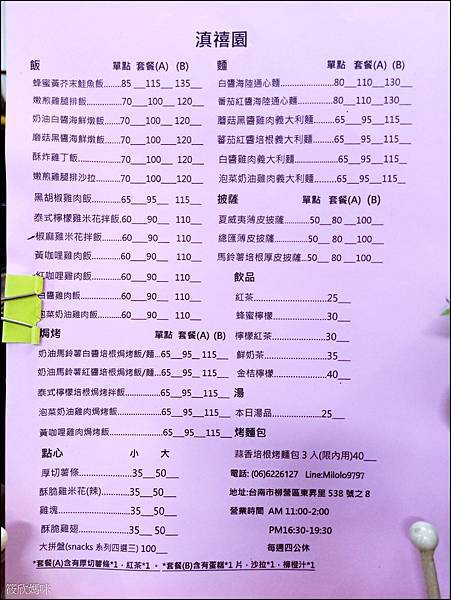 滇禧園
飯 單點 套餐(A) (B)
蜂蜜黃芥末鮭魚飯........85__115__135__
嫩煎雞腿排飯..........70__100__120__
奶油白醬海鮮燉飯......70__100__120__
磨菇黑醬海鮮燉飯......70__100__120__
酥炸雞丁飯............70__100__120__
嫩煎雞腿排沙拉........70__100__120__
黑胡椒雞肉飯........65__95__115__
泰式檸檬雞米花拌飯..60__90__110__
椒麻雞米花拌飯......60__90__110__
黃咖哩雞肉飯........60__90__110__
紅咖哩雞肉飯........60__90__110__
白醬雞肉飯..........60__90__110__
泡菜奶油雞肉飯......60__90__110__
焗烤 單點 套餐(A) (B)
奶油馬鈴薯白醬培根焗烤飯/麵...65__95__115__
奶油馬鈴薯紅醬培根焗烤飯/麵...65__95__115__
泰式檸檬培根焗烤拌飯..........65__95__115__
泡菜奶油雞肉焗烤飯............65__95__115__
黃咖哩雞肉焗烤飯..............65__95__115__
點心 小 大
厚切薯條........................35___50___
酥脆雞米花(辣)..............35___50___
雞塊..............................35___50___
酥脆雞翅........................35___50___
大拼盤(snacks 系列四選三) 100___
*套餐(A)含有厚切薯條*1，紅茶*1。*套餐(B)含有蛋糕*1片，沙拉*1，柳橙汁*1
麵 單點 套餐(A) (B)
白醬海陸通心麵..............80__110__130__
番茄紅醬海陸通心麵..........80__110__130__
蘑菇黑醬雞肉義大利麵........65__95__115__
蕃茄紅醬培根義大利麵........65__95__115__
白醬雞肉義大利麵............65__95__115__
泡菜奶油雞肉義大利麵........65__95__115__
披薩 單點 套餐(A) (B)
夏威夷薄皮披薩..........50__80__100___
總匯薄皮披薩............50__80__100___
馬鈴薯培根厚皮披薩......50__80__100___
飲品
紅茶........................25___
蜂蜜檸檬....................30___
檸檬紅茶....................30___
鮮奶茶......................35___
金桔檸檬....................40___
湯
本日湯品....................25___
烤麵包
蒜香培根烤麵包3入(限內用)40___
電話: (06)6226127 Line:Milolo9797
地址:台南市柳營區東昇里 538 號之 8
營業時間 AM 11:00-2:00
PM16:30-19:30
每週四公休
筱欣媽咪